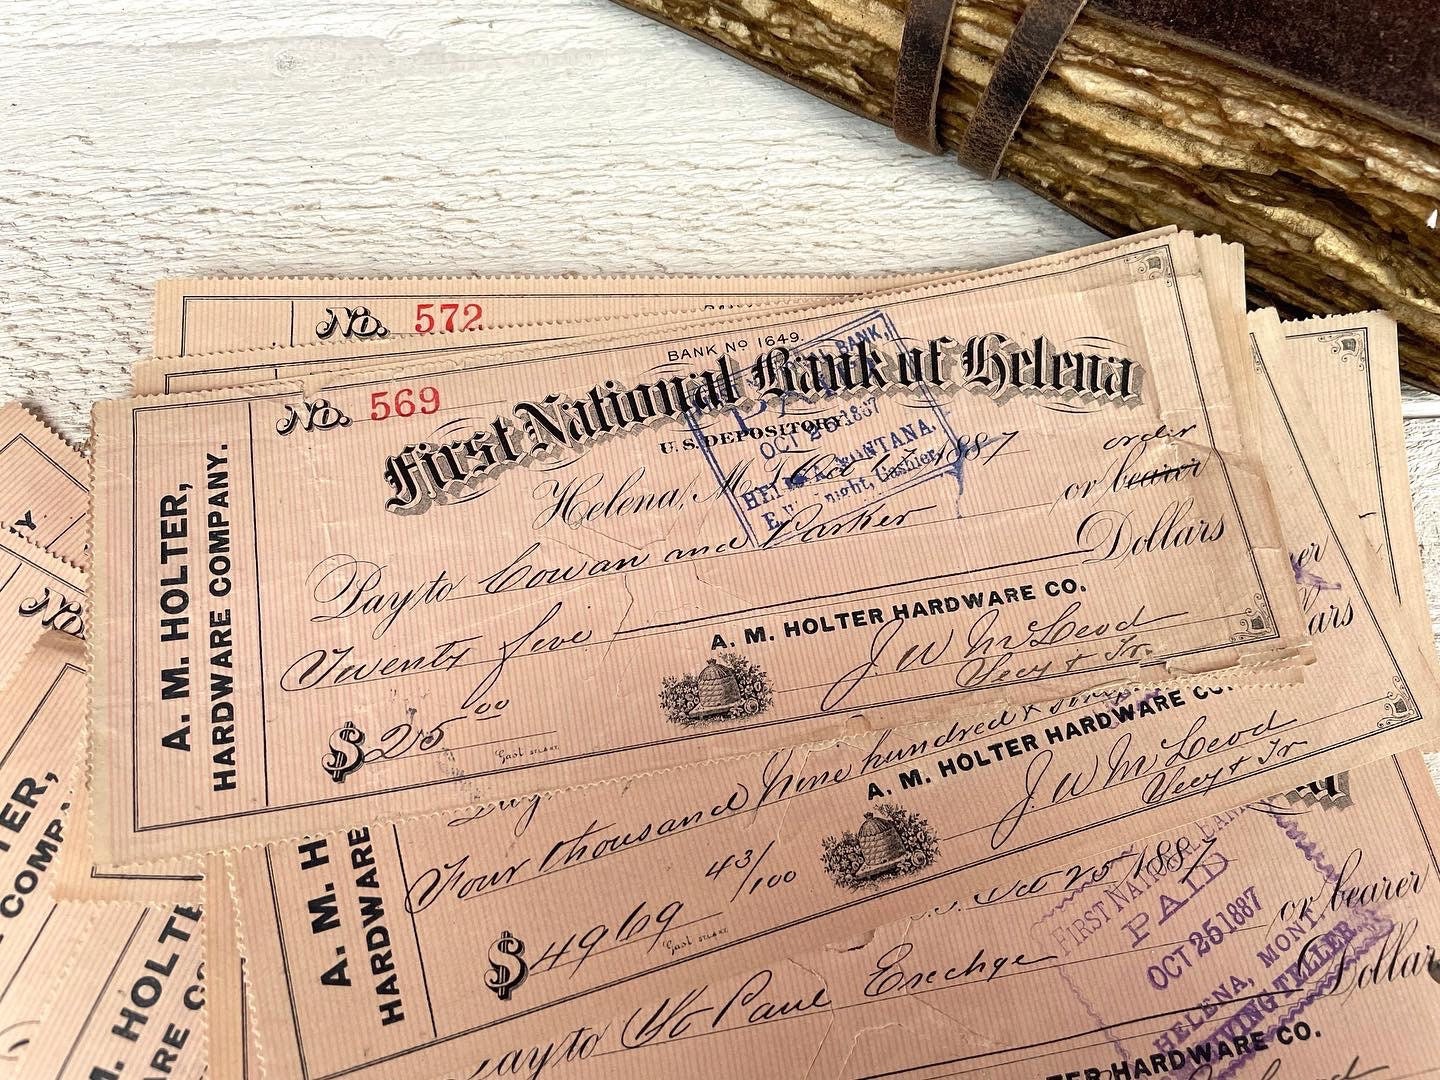 No. 572
BANK No 1649.
No. 569
First National Bank of Helena
U.S. DEPOSITORY
BANK,
OCT 1887
MONTANA.
Cashier.
Helena, M.T. 1887
order
Pay to Cowan and Parker or bearer
Twenty five Dollars
A. M. HOLTER HARDWARE CO.
J W McLeod
Secy & Tr
$25 00
A. M. HOLTER,
HARDWARE COMPANY.
No.
Four thousand nine hundred &
A. M. HOLTER HARDWARE CO.
J W McLeod
Secy & Tr
43/100
$4969
A. M. H
HARDWARE
Oct 25 1887
FIRST NAT'L BANK
PAID
OCT 25 1887
HELENA, MONT.
TELLER.
ay to St Paul Exechge or bearer
Dollar
TER HARDWARE CO.
TER,
COMP
M. HOLTE
ARE C
ars